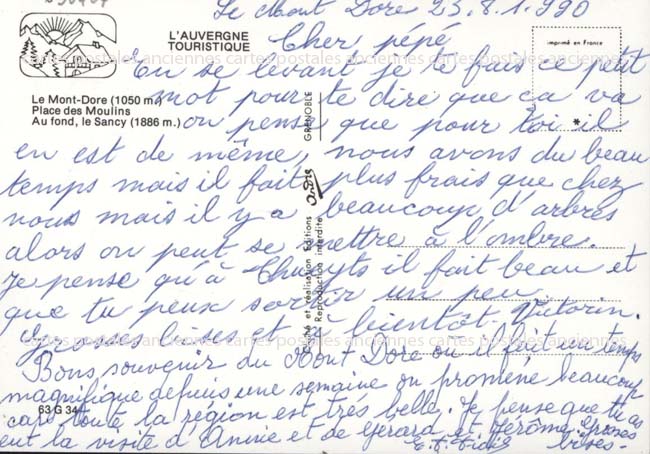 Le Mont Dore 23.8.1990
L'AUVERGNE
TOURISTIQUE
imprimé en France
Cher pépé
cartes postales anciennes cartes postales anciennes cartes postales anciennes
En se levant je te fais ce petit
Le Mont-Dore (1050 m.)
Place des Moulins
Au fond, le Sancy (1886 m.)
mot pour te dire que ça va
on pense que pour toi il
en est de même, nous avons du beau
temps mais il fait plus frais que chez
nous mais il y a beaucoup d'arbres
alors on peut se mettre à l'ombre.
Je pense qu'à il fait beau et
que tu peux sortir un peu.
Grosses bises et à bientôt. Victorin.
cartes postales anciennes cartes postales anciennes cartes postales anciennes
Bons souvenir du Mont Dore ou il fait un temps
magnifique depuis une semaine on promène beaucoup
cars toute la région est très belle. Je pense que tu as
eut la visite d'Annie et de Gérard et Jérôme. Grosses
bises.
63 G 34
GRENOBLE
André
Cliché et réalisation Editions
Reproduction interdite